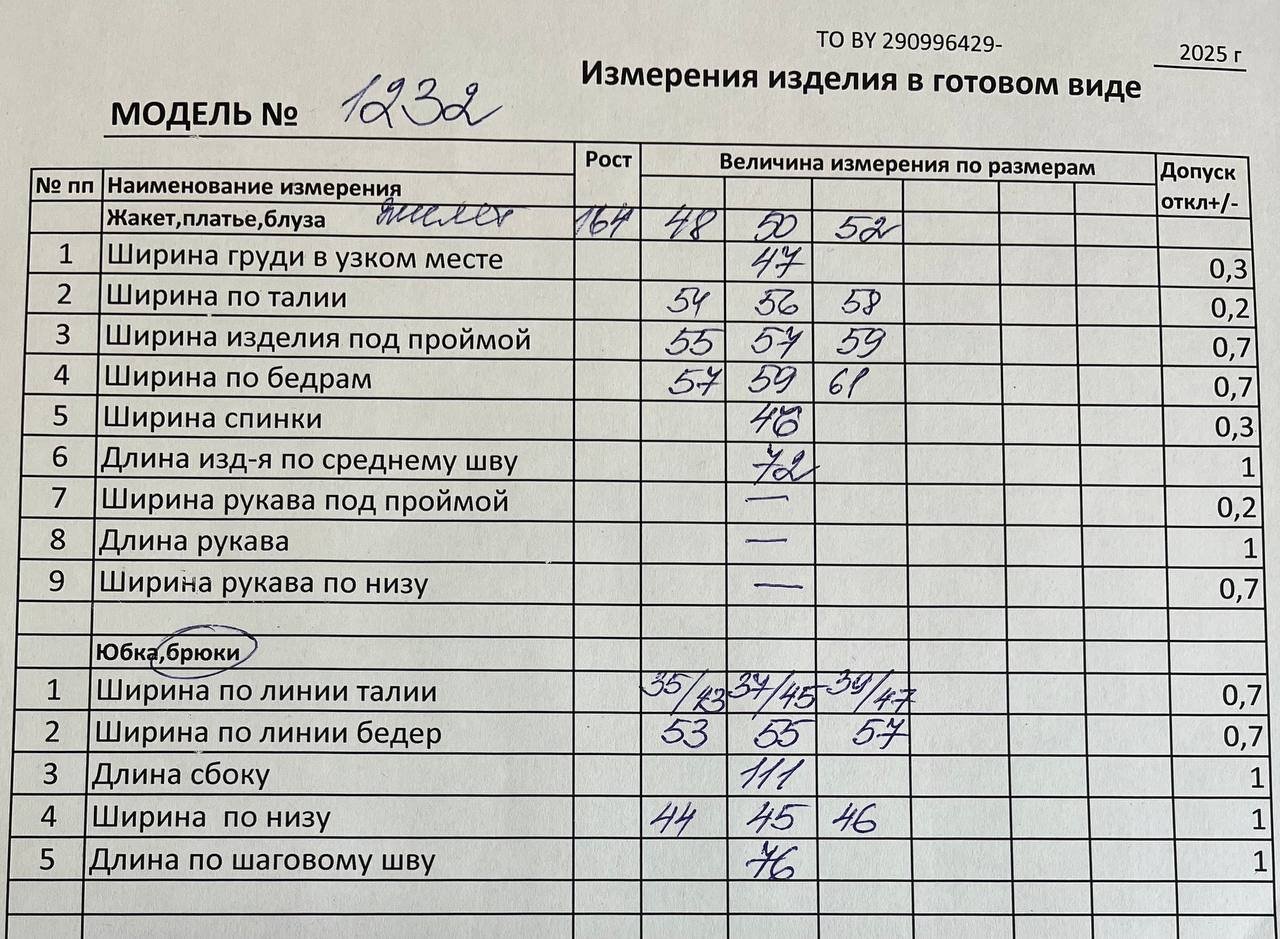 ТО BY 290996429-
2025 г
Измерения изделия в готовом виде
МОДЕЛЬ № 1232
№ пп Наименование измерения Рост Величина измерения по размерам Допуск откл+/-
Жакет,платье,блуза жилет 164 48 50 52
1 Ширина груди в узком месте 47 0,3
2 Ширина по талии 54 56 58 0,2
3 Ширина изделия под проймой 55 57 59 0,7
4 Ширина по бедрам 57 59 61 0,7
5 Ширина спинки 0,3
6 Длина изд-я по среднему шву 72 1
7 Ширина рукава под проймой — 0,2
8 Длина рукава — 1
9 Ширина рукава по низу — 0,7
Юбка,брюки
1 Ширина по линии талии 35/43 37/45 39/47 0,7
2 Ширина по линии бедер 53 55 57 0,7
3 Длина сбоку 111 1
4 Ширина по низу 44 45 46 1
5 Длина по шаговому шву 76 1